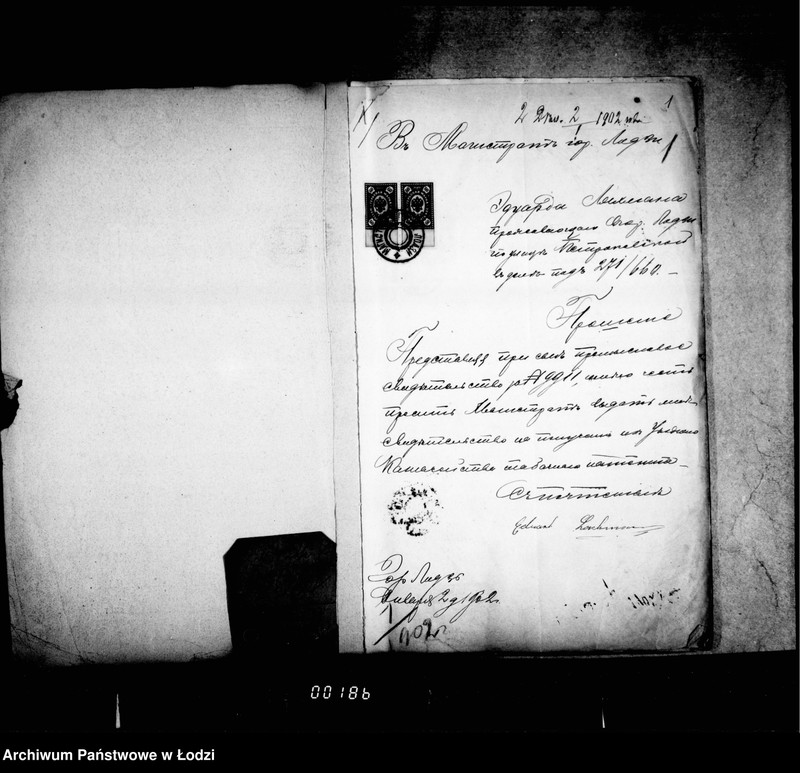 1
2 Янв. 2 1902
Въ Магистратъ гор. Лодзи
Эдуарда
проживающаго въ гор. Лодзи
по улицѣ Петроковской
въ домѣ подъ 271/660. —
Прошеніе
Представляя при семъ промысловое
свидѣтельство за № 9911, имѣю честь
просить Магистратъ выдать мнѣ
свидѣтельство на полученіе изъ Уѣзднаго
Казначейства табачнаго патента —
Съ почтеніемъ
Eduard
Гор. Лодзь
Января 2 д. 1902 г.
1
902
00186
Archiwum Państwowe w Łodzi